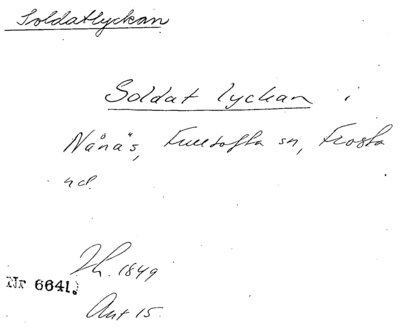 Soldatlyckan
Soldat lyckan i
Nånäs, Fulltofta sn, Frosta
hd.
Jh. 1849
Nr 6641.
Akt 15.